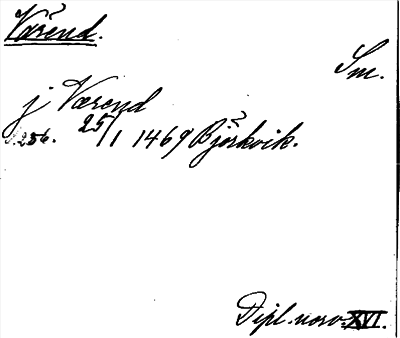 Värend.
Sm.
j Værend
S. 256. 25/1 1469 Björkvik.
Dipl. norv. XVI.